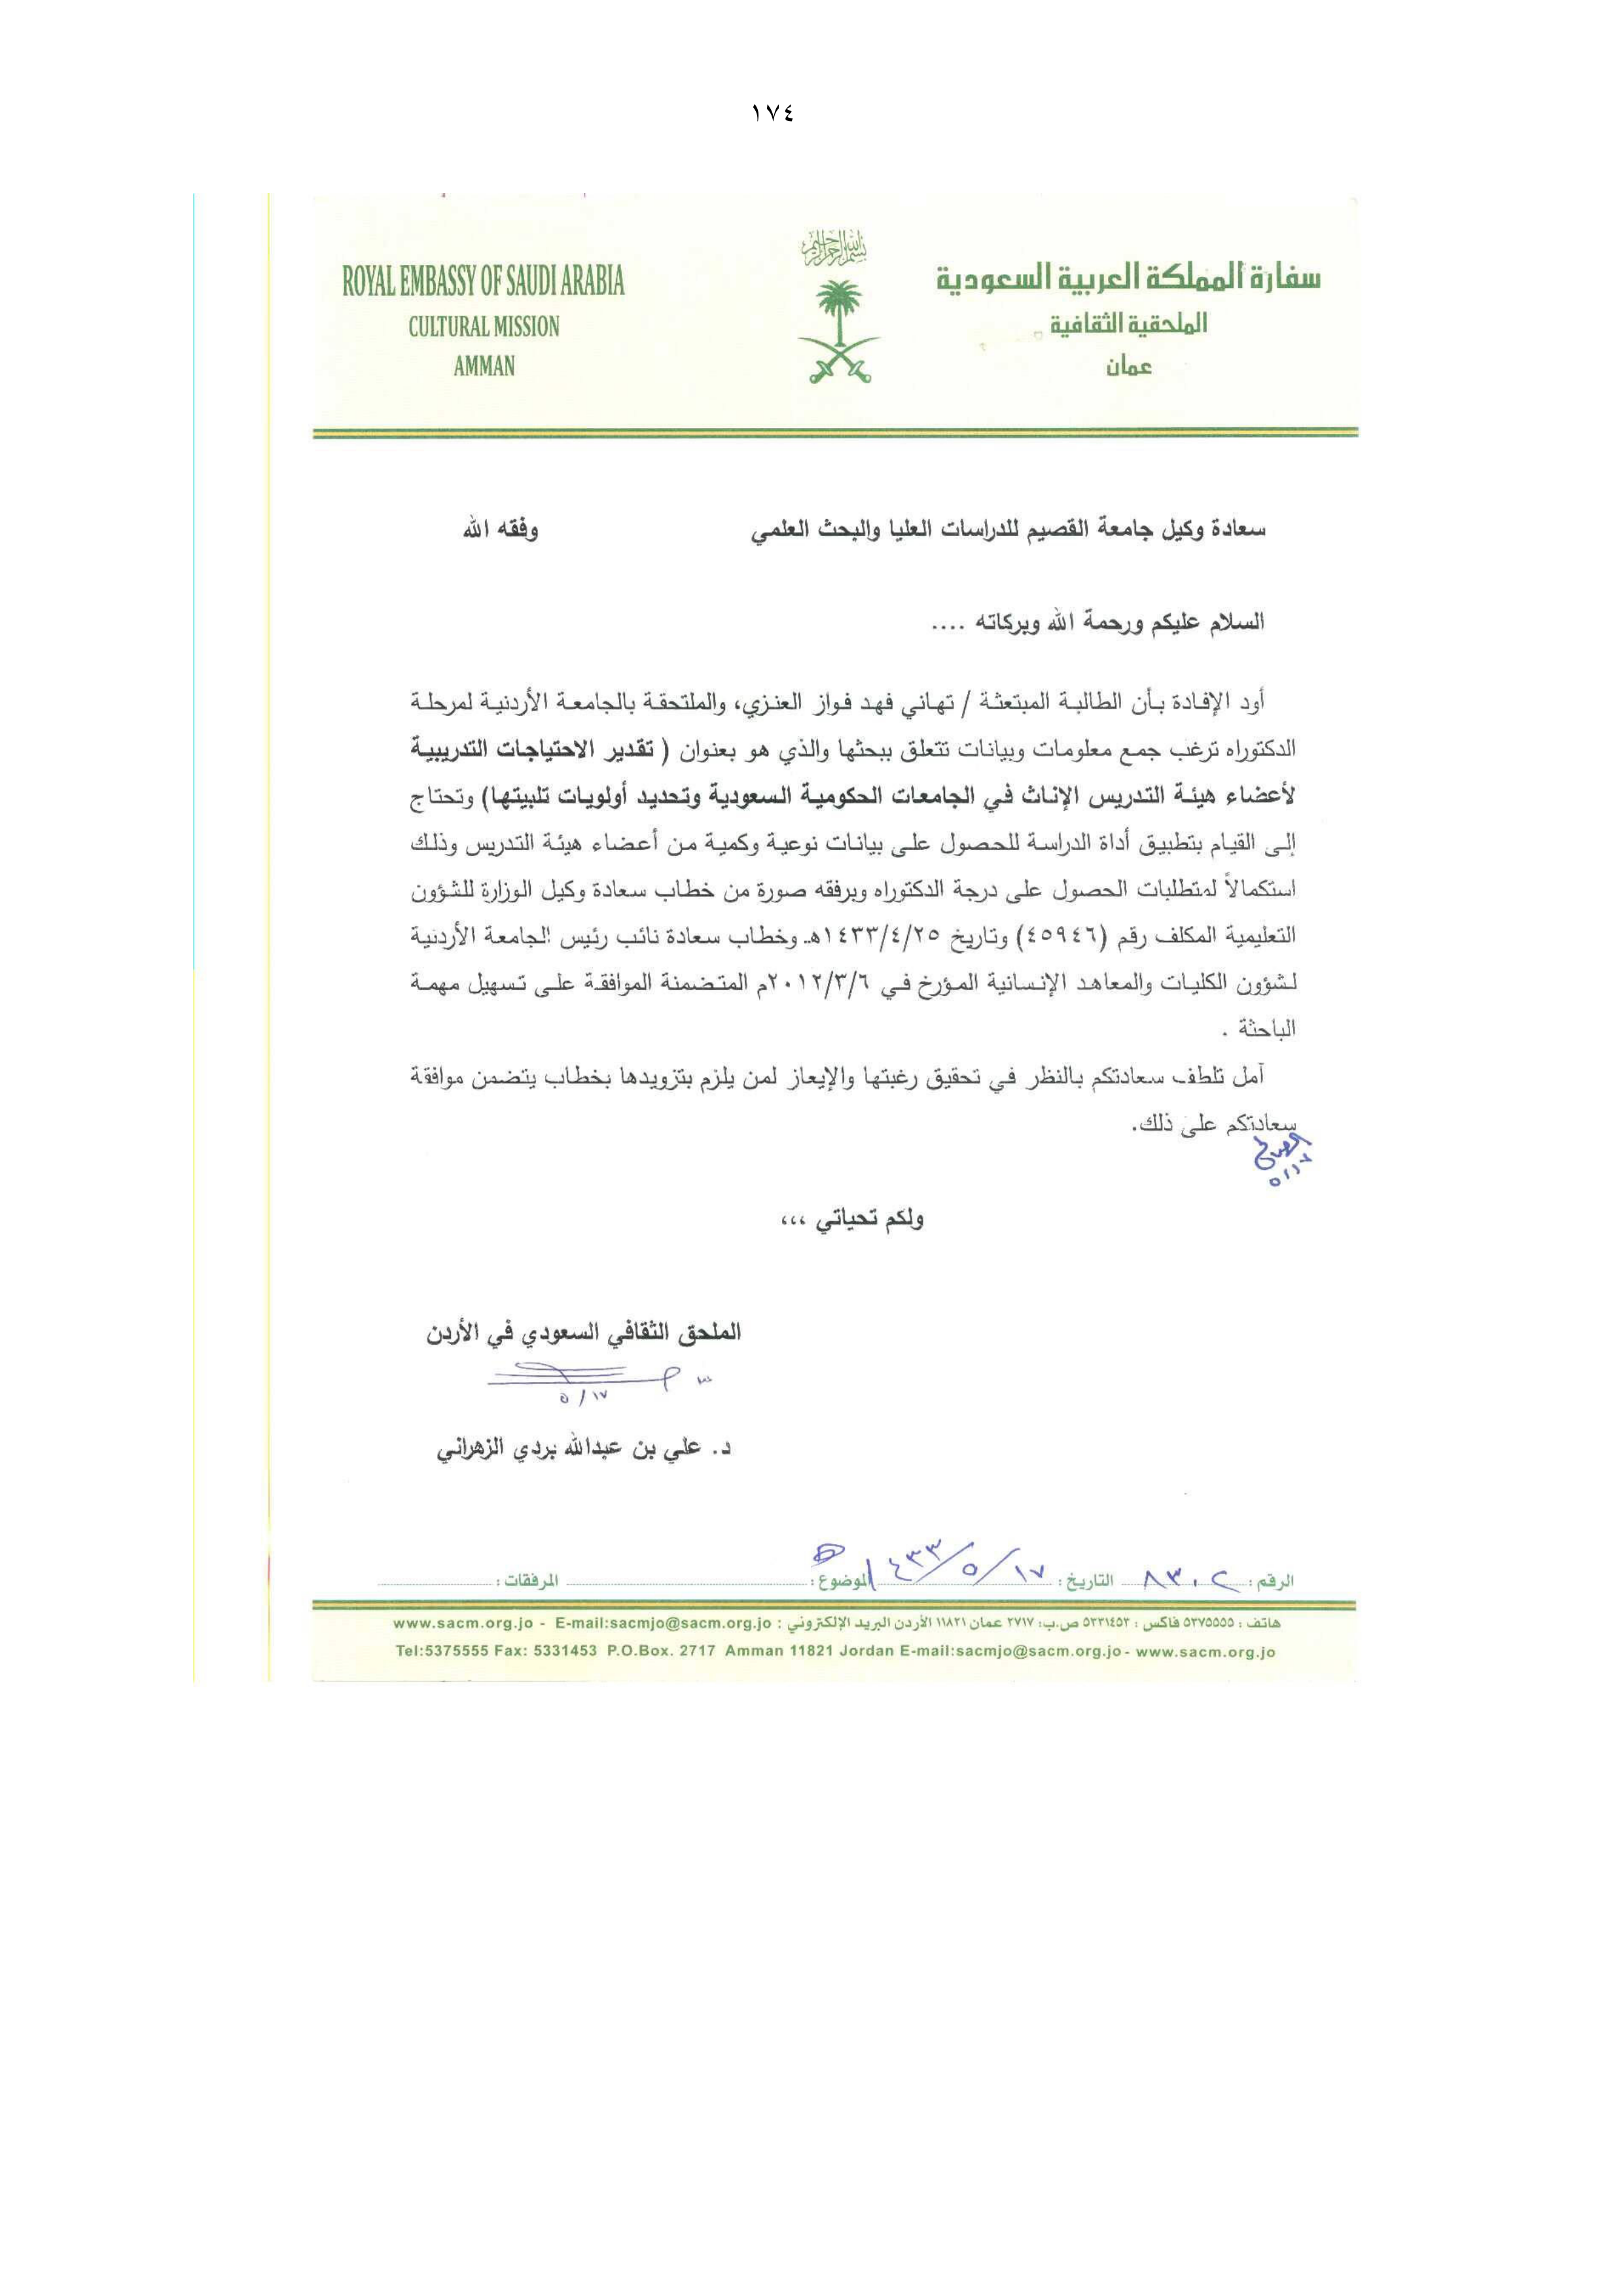 ١٧٤
ROYAL EMBASSY OF SAUDI ARABIA
CULTURAL MISSION
AMMAN
سفارة المملكة العربية السعودية
الملحقية الثقافية
عمان
سعادة وكيل جامعة القصيم للدراسات العليا والبحث العلمي وفقه الله
السلام عليكم ورحمة الله وبركاته ....
أود الإفادة بأن الطالبة المبتعثة / تهاني فهد فواز العنزي، والملتحقة بالجامعة الأردنية لمرحلة
الدكتوراه ترغب جمع معلومات وبيانات تتعلق ببحثها والذي هو بعنوان ( تقدير الاحتياجات التدريبية
لأعضاء هيئة التدريس الإناث في الجامعات الحكومية السعودية وتحديد أولويات تلبيتها) وتحتاج
إلى القيام بتطبيق أداة الدراسة للحصول على بيانات نوعية وكمية من أعضاء هيئة التدريس وذلك
استكمالاً لمتطلبات الحصول على درجة الدكتوراه وبرفقه صورة من خطاب سعادة وكيل الوزارة للشؤون
التعليمية المكلف رقم (٤٥٩٤٦) وتاريخ ١٤٣٣/٤/٢٥هـ وخطاب سعادة نائب رئيس الجامعة الأردنية
لشؤون الكليات والمعاهد الإنسانية المؤرخ في ٢٠١٢/٣/٦م المتضمنة الموافقة على تسهيل مهمة
الباحثة .
آمل تلطف سعادتكم بالنظر في تحقيق رغبتها والإيعاز لمن يلزم بتزويدها بخطاب يتضمن موافقة
سعادتكم على ذلك.
ولكم تحياتي ،،،
الملحق الثقافي السعودي في الأردن
٥/١٧
د. علي بن عبدالله بردي الزهراني
الرقم : ٨٣٠٢ التاريخ : ١٤٣٣/٥/١٧ الموضوع : المرفقات :
هاتف : ٥٣٧٥٥٥٥ فاكس : ٥٣٣١٤٥٣ ص.ب: ٢٧١٧ عمان ١١٨٢١ الأردن البريد الإلكتروني : www.sacm.org.jo - E-mail:sacmjo@sacm.org.jo
Tel:5375555 Fax: 5331453 P.O.Box. 2717 Amman 11821 Jordan E-mail:sacmjo@sacm.org.jo - www.sacm.org.jo